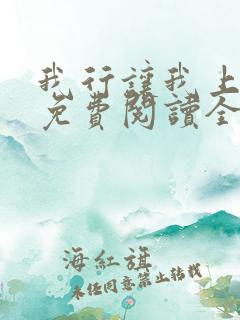 我行讓我上
免費閱讀全
海紅旗
未经同意禁止转载